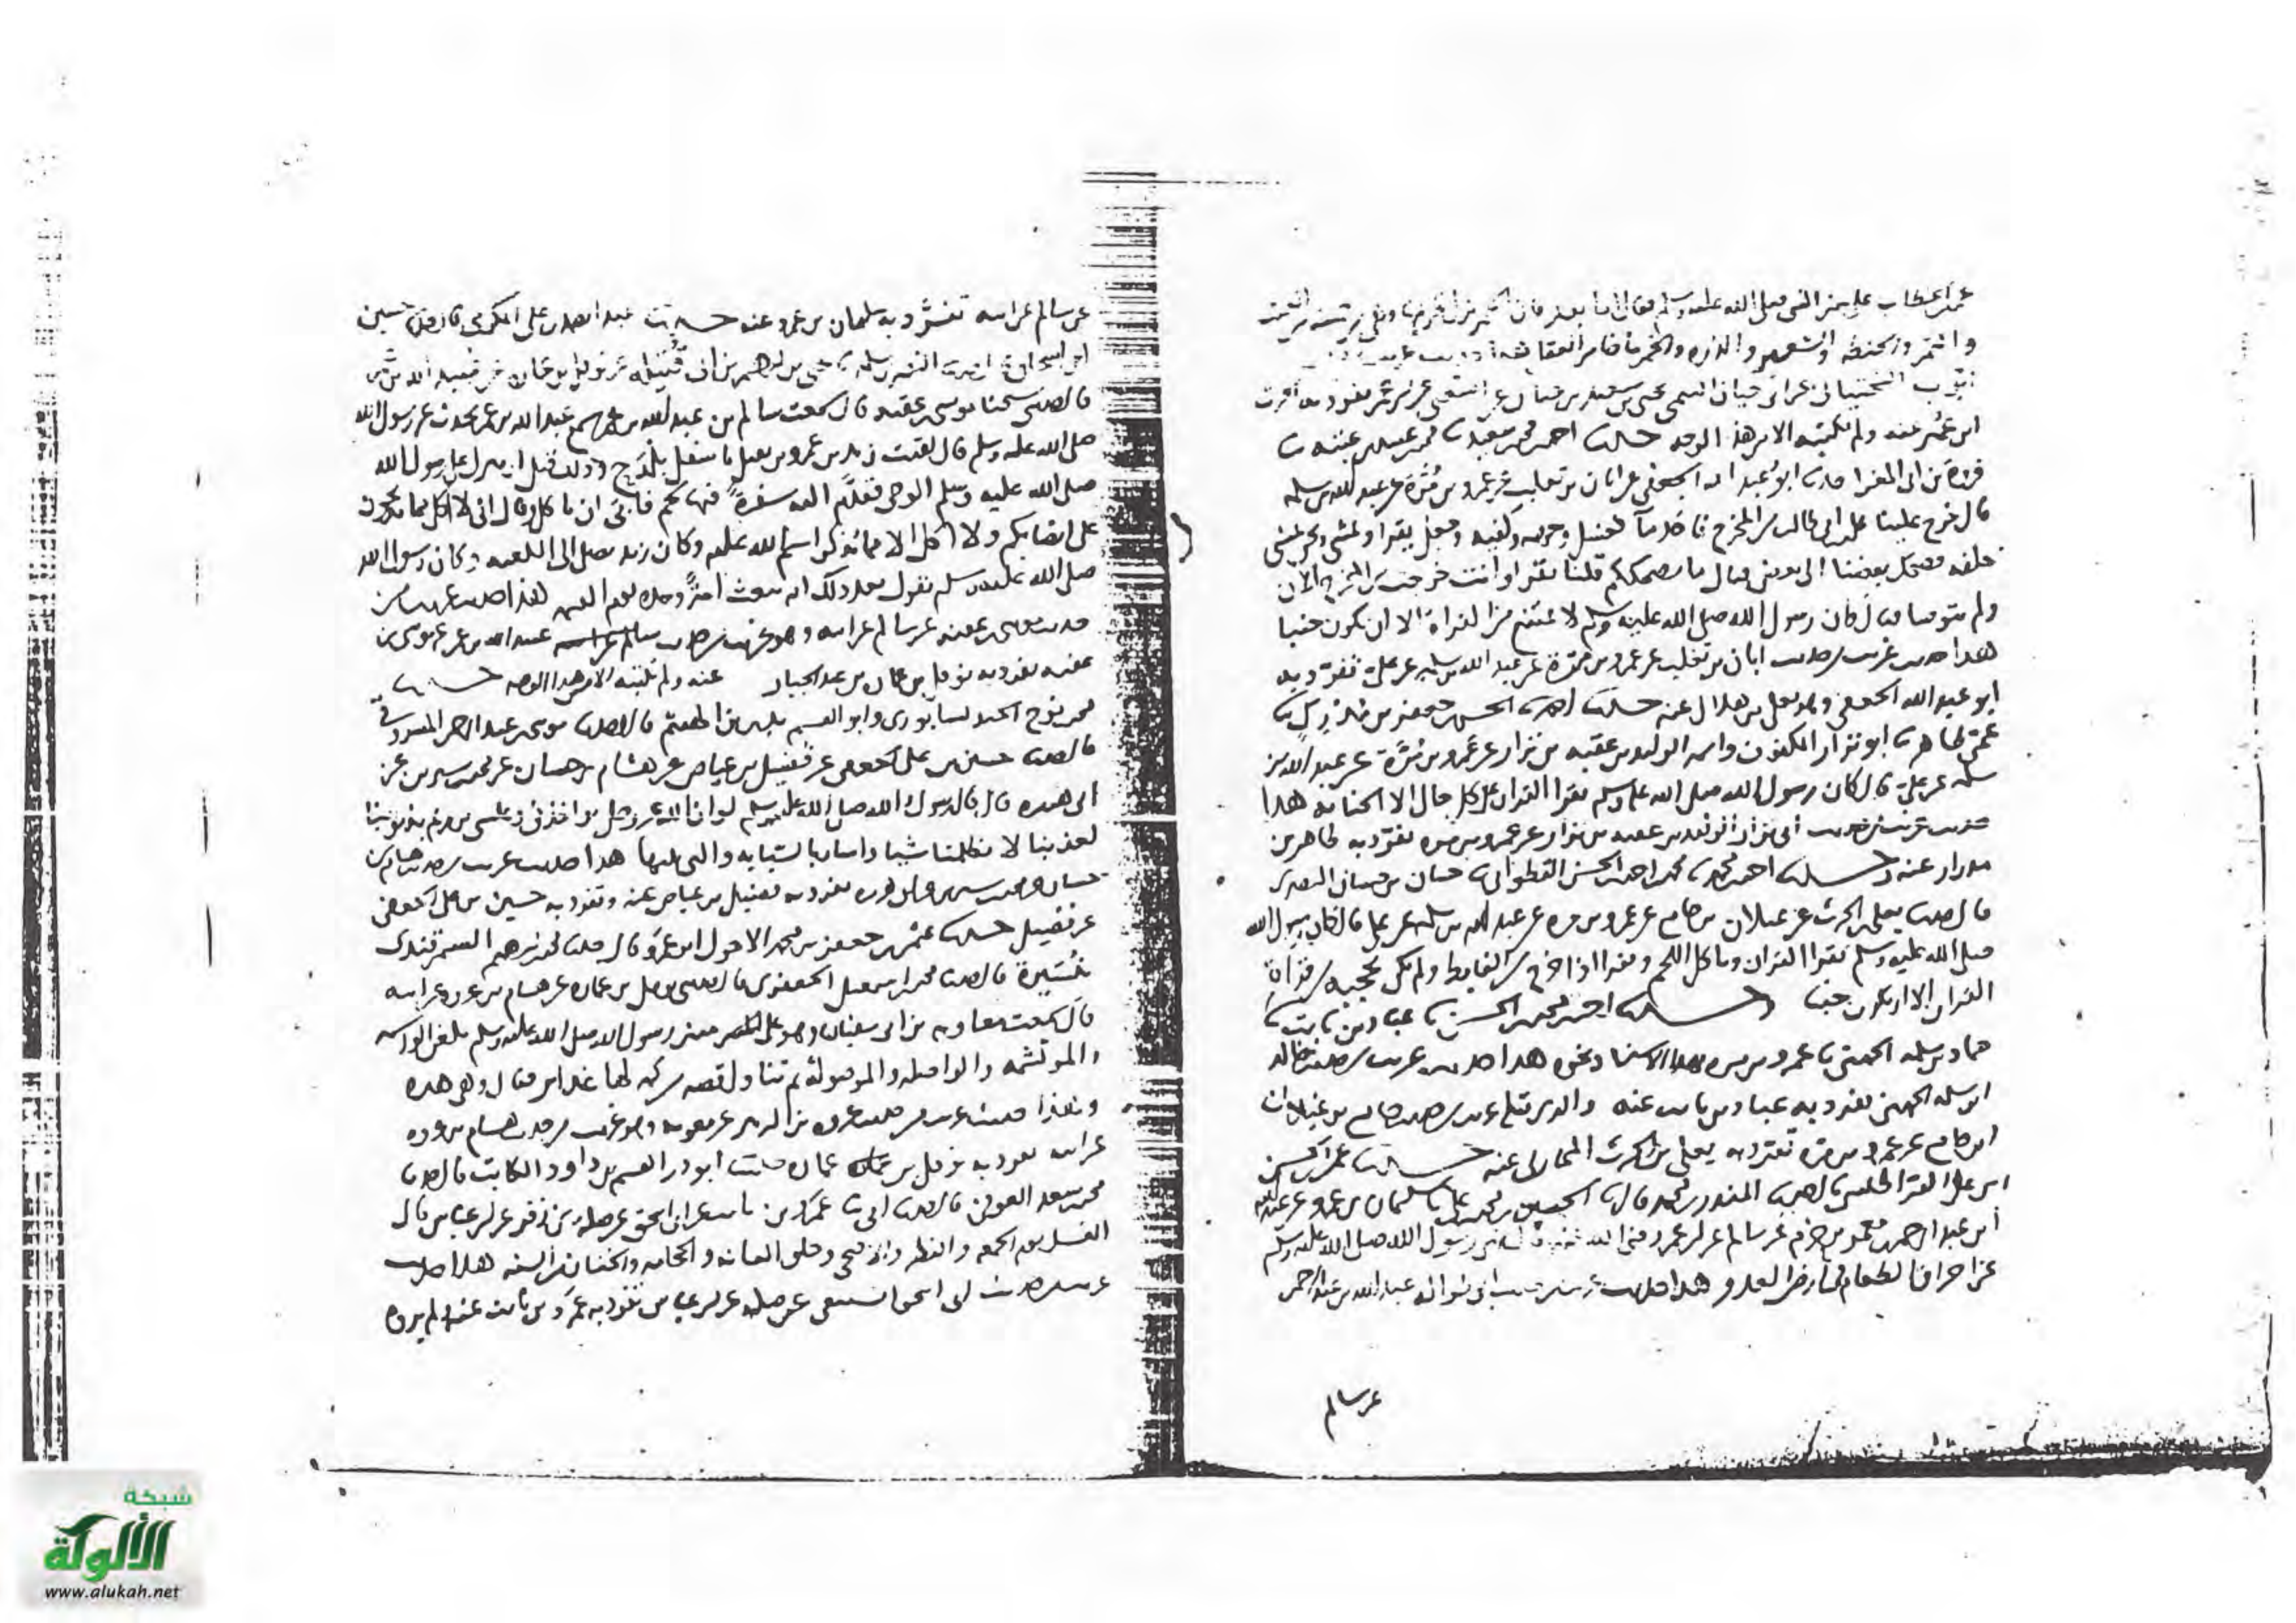 عمر الخطاب على منبر النبي صلى الله عليه وسلم فقال اما بعد فان الخمر نزل تحريمها وهي من
والتمر والحنطه والشعير والذره والخمر ما خامر العقل هذا حديث غريب
ايوب السختياني عن ابي حيان التيمي يحيى بن سعيد بن حيان عن الشعبي عن
ابن عمر عنه ولم نكتبه الا من هذا الوجه حدثنا احمد بن محمد بن سعيد محمد بن عبيد بن عتبه
فروة بن ابي المغرا ابو عبد الله الجعفي عن ابان بن تغلب عن عمرو بن مرة عن عبد الله بن سلمه
قال خرج علينا علي بن ابي طالب من المخرج فاخذ ما فغسل وجهه وكفيه وجعل يقرا ويمشي ونحن نمشي
خلفه فضحك بعضنا الى بعض فقال ما يضحككم قلنا تقرا وانت خرجت من المخرج الان
ولم تتوضا فقال كان رسول الله صلى الله عليه وسلم لا يمتنع من القراة الا ان يكون جنبا
هذا حديث غريب من حديث ابان بن تغلب عن عمرو بن مرة عن عبد الله بن سلمه عن علي تفرد به
ابو عبد الله الجعفي وهو معلى بن هلال عنه حدثنا احمد بن الحسين جعفر بن
عمي طاهر ابو نزار الكفون واسمه الوليد بن عقبه بن نزار عن عمرو بن مرة عن عبد الله بن
سلمه عن علي قال كان رسول الله صلى الله عليه وسلم يقرا القران على كل حال الا الجنابة هذا
حديث غريب من حديث ابي نزار الوليد بن عقبه بن نزار عن عمرو بن مره تفرد به طاهر بن
مدرار عنه حدثنا احمد بن محمد محمد بن احمد بن الحسن القطواني حسان بن حسان البصري
قال حدثنا يعلى بن الحرث عن غيلان بن جامع عن عمرو بن مره عن عبد الله بن سلمه عن علي قال كان رسول الله
صلى الله عليه وسلم يقرا القران وياكل اللحم ويقرا اذا خرج من الغايط ولم يكن يحجبه من قراة
القران الا ان يكون جنبا حدثنا احمد بن محمد بن الحسن عباد بن ثابت
بن سلمه الجهني عمرو بن مره بهذا الاسناد نحوه هذا حديث غريب من حديث خالد
ابن سلمه الجهني تفرد به عباد بن ثابت عنه والذي قبله غريب من حديث جامع بن غيلان
ابن جامع عن عمرو بن مرة تفرد به يعلى بن الحرث المحاربي عنه حدثنا عمر بن الحسن
ابن علي حدثنا المنذر بن محمد قال الحسين بن محمد بن علي سليمان بن عمرو عن عبد الله
ابن عبد الرحمن بن معمر بن حزم عن سالم عن ابن عمر رضي الله عنه قال نهى رسول الله صلى الله عليه وسلم
عن احراق الطعام في ارض العدو هذا حديث غريب من حديث ابي طواله عبد الله بن عبد الرحمن
عن سالم
عن سالم عن ابيه تفرد به سليمان بن عمرو عنه حدثنا عبد الصمد بن علي المكرمي قال حدثني حسين
ابن اسحاق النضر بن سلمه يحيى بن ابراهيم بن ابي قتيلة عن نوفل بن عمارة
قال حدثني شيخنا موسى بن عقبه قال سمعت سالم بن عبد الله بن عمر انه سمع عبد الله بن عمر يحدث عن رسول الله
صلى الله عليه وسلم قال لقيت زيد بن عمرو بن نفيل باسفل بلدح وذلك قبل ان ينزل على رسول الله
صلى الله عليه وسلم الوحي فقدم اليه سفرة فيها لحم فابى ان ياكل وقال اني لا اكل مما تذبحون
على انصابكم ولا اكل الا مما يذكر اسم الله عليه وكان زيد يصلي الى الكعبه وكان رسول الله
صلى الله عليه وسلم يقول بعد ذلك انه يبعث امة وحده يوم القيمه هذا حديث غريب من
حديث موسى بن عقبه عن سالم عن ابيه وهو غريب من حديث عبيد الله بن عمر عن موسى بن
عقبه تفرد به نوفل بن عمارة بن عبد الجبار عنه ولم نكتبه الا من هذا الوجه حدثنا
محمد بن نوح الجنديسابوري وابو القسم بن الهيثم قالا حدثنا موسى بن عبد الرحمن المسروقي
قال حدثنا حسين بن علي الجعفي عن فضيل بن عياض عن هشام بن حسان عن محمد بن سيرين عن
ابي هريره قال قال رسول الله صلى الله عليه وسلم لو ان الله عز وجل يواخذني وعيسى بن مريم بذنوبنا
لعذبنا لا يظلمنا شيا واشار بالسبابه والتي تليها هذا حديث غريب من حديث هشام بن
حسان ومحمد بن سيرين عن ابي هريره تفرد به فضيل بن عياض عنه وتفرد به حسين بن علي الجعفي
عن فضيل حدثنا جعفر بن محمد الاحول قال حدثنا محمد بن ابراهيم السمرقندي
قال حدثنا محمد بن اسمعيل الجعفري قال حدثني نوفل بن عماره عن هشام بن عروه عن ابيه
قال سمعت معاويه بن ابي سفيان وهو على المنبر منبر رسول الله صلى الله عليه وسلم يلعن الواشمه
والموتشمه والواصله والموصولة ثم تناول قصه من كم لها فقال وهي هذه
وهذا حديث غريب من حديث عروه بن الزبير عن معويه وهو غريب من حديث هشام بن عروه
عن ابيه تفرد به نوفل بن عماره حدثنا ابو ذر القسم بن داود الكاتب قال حدثنا
محمد بن سعد العوفي قال حدثنا ابي عمرو بن ثابت عن ابي اسحق عن صله بن زفر عن ابن عباس قال
الغسل يوم الجمعه والفطر والاضحى وحلق العانه والحجامه والختان من السنه هذا حديث
غريب من حديث ابي اسحق السبيعي عن صله عن ابن عباس تفرد به عمرو بن ثابت عنه ولم يروه
شبكة
الألوكة
www.alukah.net